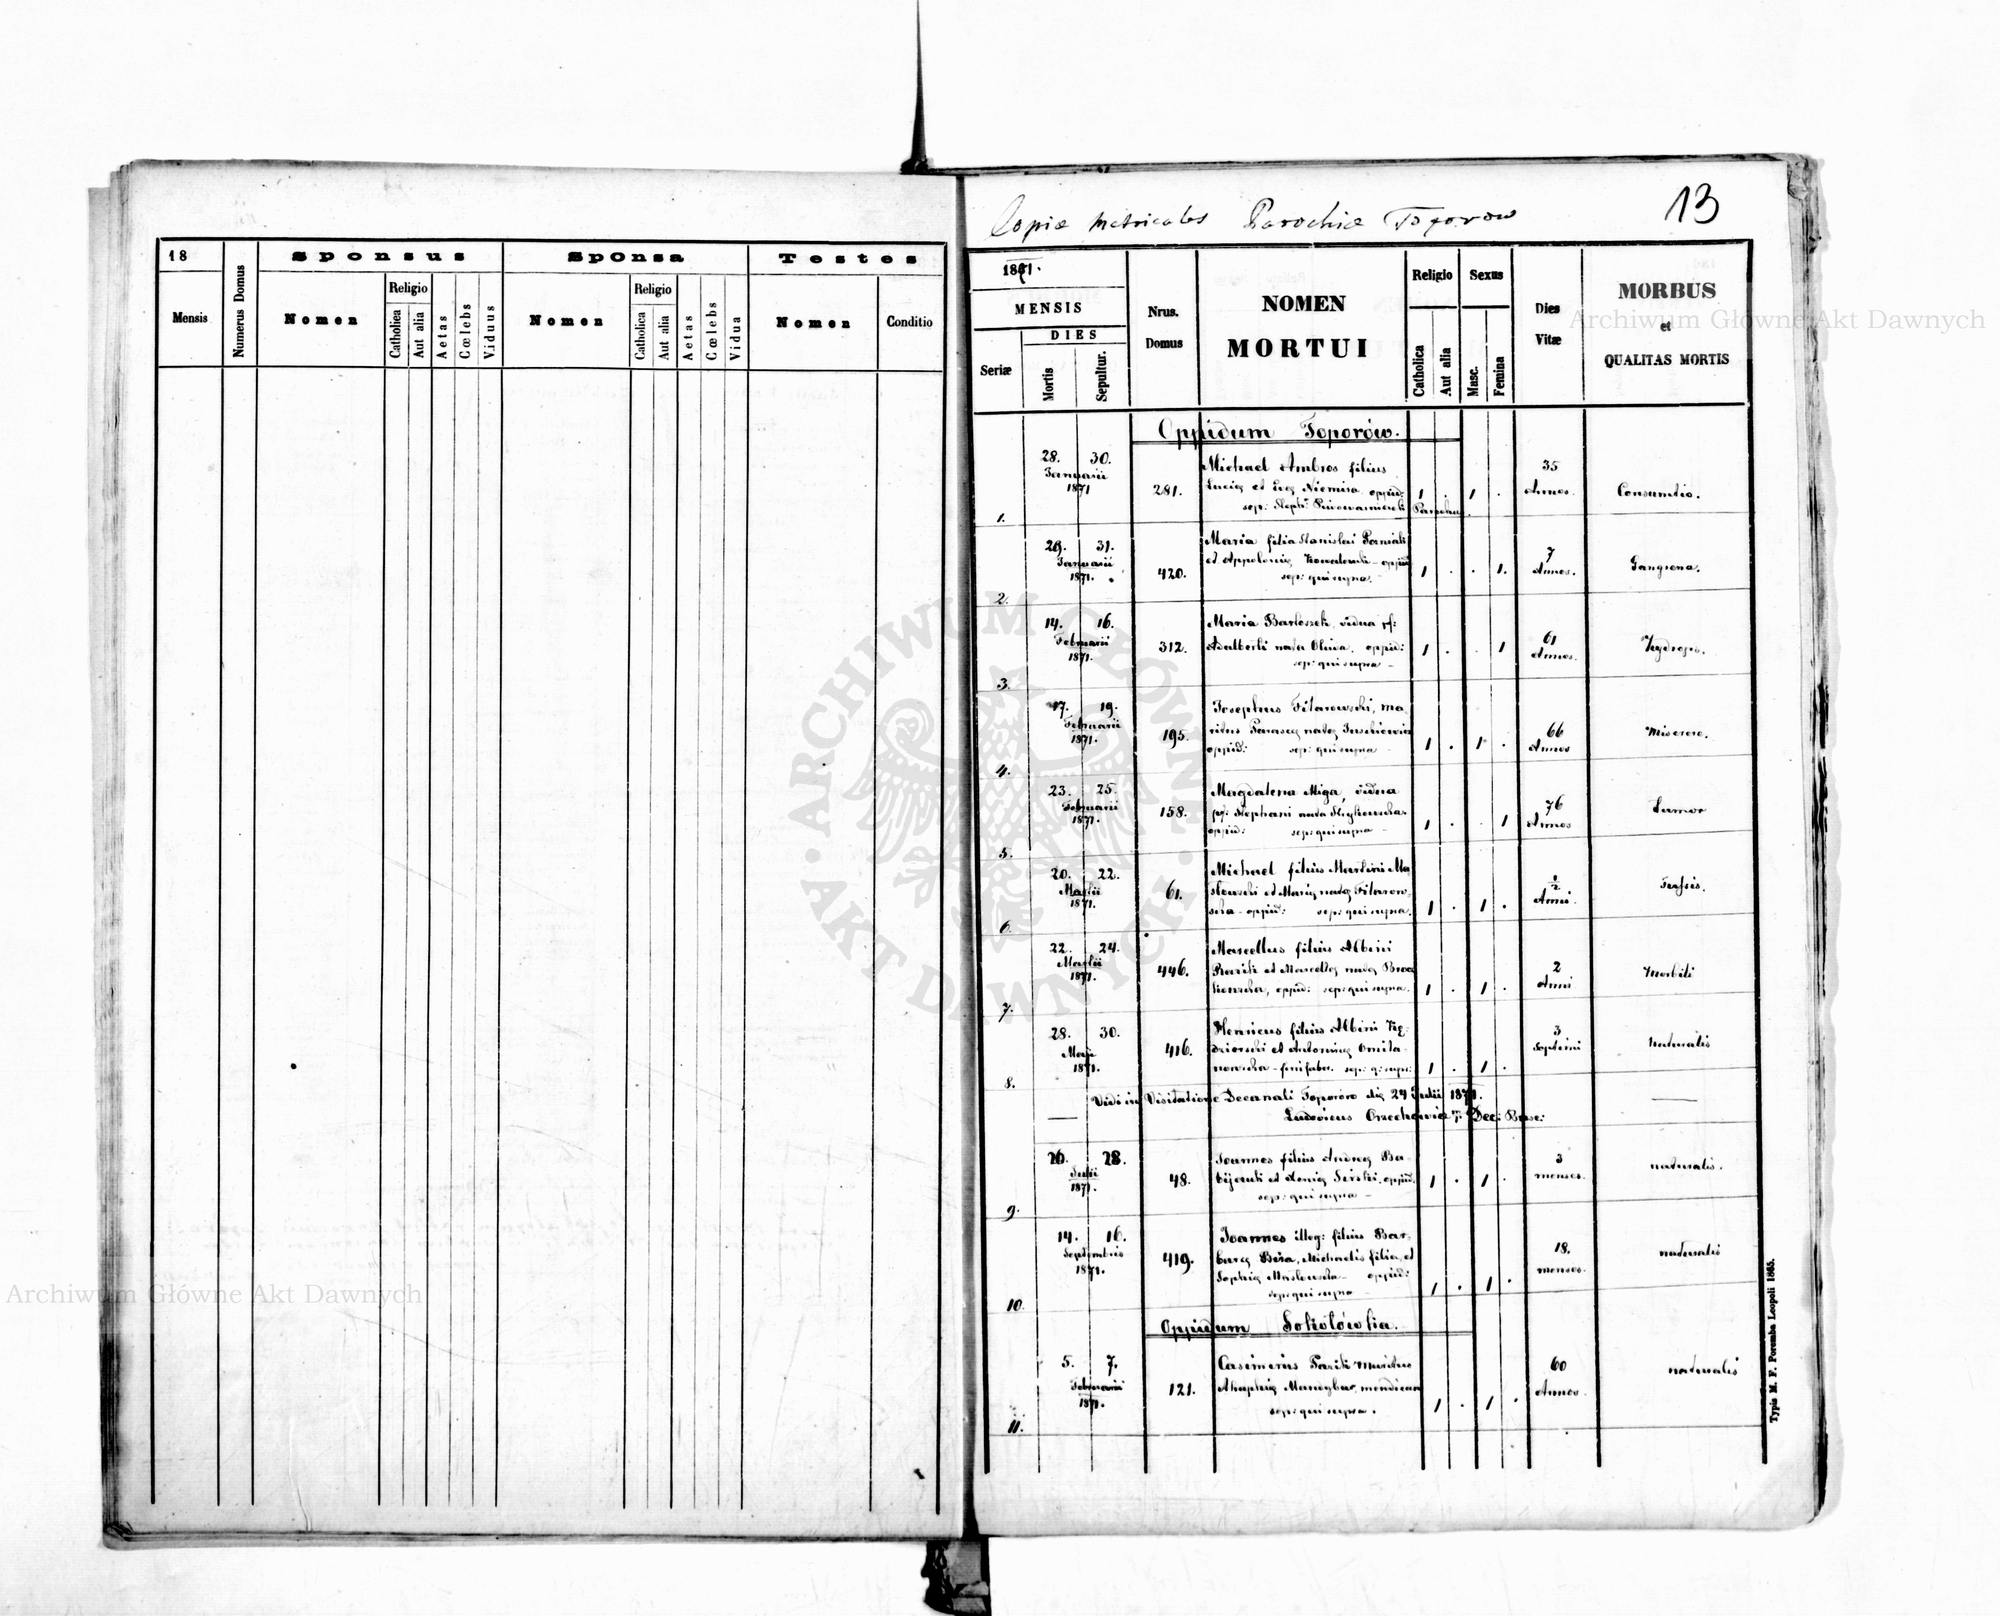 18
Mensis
Numerus Domus
Sponsus
Nomen
Religio
Catholica
Aut alia
Aetas
Cœlebs
Viduus
Sponsa
Nomen
Religio
Catholica
Aut alia
Aetas
Cœlebs
Vidua
Testes
Nomen
Conditio
Copia Metricales Parochiæ Toporow
13
1871.
MENSIS
DIES
Seriæ
Mortis
Sepultur.
Nrus.
Domus
NOMEN
MORTUI
Religio
Catholica
Aut alia
Sexus
Masc.
Femina
Dies
Vitæ
MORBUS
et
QUALITAS MORTIS
Oppidum Toporów.
1. 28. 30. Januarii 1871 281.
Michael Ambros filius
Lucæ et Evæ Niemisa oppid:
sep: Steph:
1 . 1 . 35 Annos. Consumtio.
2. 29. 31. Januarii 1871. 420.
Maria filia Stanislai
et Appoloniæ oppid:
sep: qui supra.
1 . . 1. 7 Annos. Gangrena.
3. 14. 16. Februarii 1871. 312.
Maria Bartoszek, vidua pf:
Adalberti nata Oliwa. oppid:
sep: qui supra –
1 . . 1 61 Annos. Hydrops.
4. 17. 19. Februarii 1871. 195.
Josephus Fitarowski, ma-
ritus Parascæ natæ
oppid: sep: qui supra –
1 . 1 . 66 Annos Miserere.
5. 23. 25. Februarii 1871. 158.
Magdalena Miga, vidua
pf: Stephani nata
oppid: sep: qui supra –
1 . . 1 76 Annos Tumor
6. 20. 22. Martii 1871. 61.
Michael filius Martini Ma-
słowski et Mariæ natæ Fitarow-
ska – oppid: sep: qui supra.
1 . 1 . 1/2 Anni Tussis.
7. 22. 24. Martii 1871. 446.
Marcellus filius Albini
et Marcellæ natæ
oppid: sep: qui supra.
1 . 1 . 2 Anni Morbili
8. 28. 30. Maji 1871. 416.
Henricus filius Albini Kę-
dzierski et Antoninæ
sep: q: supr:
1 . 1 . 3 septim naturalis
Vidi in Visitatione Decanali Toporów die 24 Julii 1871.
Ludovicus Orzechowicz Dec: Busc:
9. 26. 28. Julii 1871. 48.
Joannes filius Andreæ Ba-
et Xeniæ Serski, oppid:
sep: qui supra –
1 . 1 . 3 menses. naturalis.
10. 14. 16. Septembris 1871. 419.
Joannes illeg: filius Bar-
baræ Béra, Michaelis filia, et
Sophiæ Masłowska – oppid:
sep: qui supra –
1 . 1 . 18. menses. naturalis
Oppidum Sokołówka.
11. 5. 7. Februarii 1871. 121.
Casimirus Pazik maritus
Ahaphiæ Mandybur, mendicans
sep: qui supra.
1 . 1 . 60 Annos naturalis
Typis M. F. Poremba Leopoli 1865.
Archiwum Główne Akt Dawnych
ARCHIWUM GŁÓWNE · AKT DAWNYCH ·
Archiwum Główne Akt Dawnych